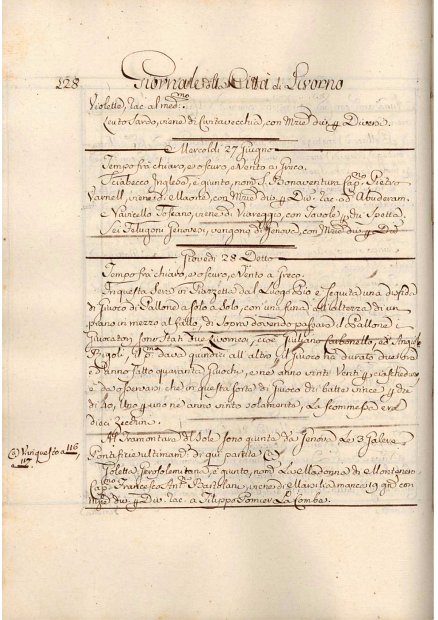 128 Giornale della Città di Livorno
Violette, rac. al med.mo
Leuto Sardo, viene di Civitavecchia, con Mrie div. p Diversi.
Mercoldi 27 Giugno
Tempo frà chiaro, e oscuro, e Vento a Greco.
Sciabecco Inglese, è giunto, nom. S. Bonaventura Capno Pietro
Varnell, viene di Maone, con Mrie div. p Div. rac. ad Abuderam.
Navicello Toscano, viene di Viareggio, con Tavole p
Sei Feluconi Genovesi, vengono di Genova, con Mrie div. p Div.
Giovedi 28 Detto
Tempo frà chiaro, e oscuro, e Vento a Greco.
In questa Sera in Piazzetta del Luogo Pio è seguita una disfida
di Giuoco di Pallone a Solo a Solo, con una fune all'altezza di un
piano in mezzo al fallo, di Sopra dovendo passare il Pallone i
Giuocatori sono Stati due Livornesi, cioè Giuliano Carbonello, ed Angiolo
Rigoli, il p.mo dava quindici all'altro il Giuoco hà durato due ore
ed anno fatto quaranta Giuochi, e ne anno vinti Venti p ciascheduno
e da osservarsi che in questa sorte di Giuoco chi batte vince p
di no, Uno p uno ne anno vinto solamente, La scommessa era
dieci Zecchini.
Al Tramontare del Sole sono giunte da Genova Le 3 Galere
Pontificie ultimamte di qui partite (a)
(a) Vin questo a 116
e 117
Poletta Gerosolemitana, è giunto, nom. La Madonna di Montenero
Cap.no Francesco Ant.o Barbiani, viene di Marsilia manca 19 gni con
Mrie div. p Div. rac. a Filippo Pomier La Combe.